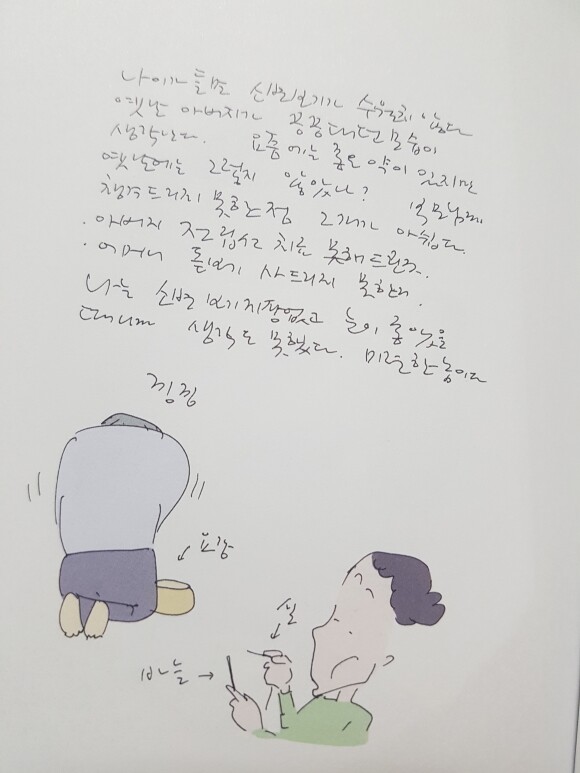 나이가 들면 신변보기가 수월치 않다
옛날 아버지가 끙끙대던 모습이
생각난다. 요즘에는 좋은 약이 있지만
옛날에는 그렇지 않았나? 부모님께
챙겨드리지 못한 점 그게 아쉽다.
· 아버지 전립선 치료 못해드린 것.
· 어머니 돋보기 사드리지 못한 것.
나는 신변보기 지장없고 눈이 좋았을
때니까 생각도 못했다. 미련한 놈이다
낑낑
요강
실
바늘